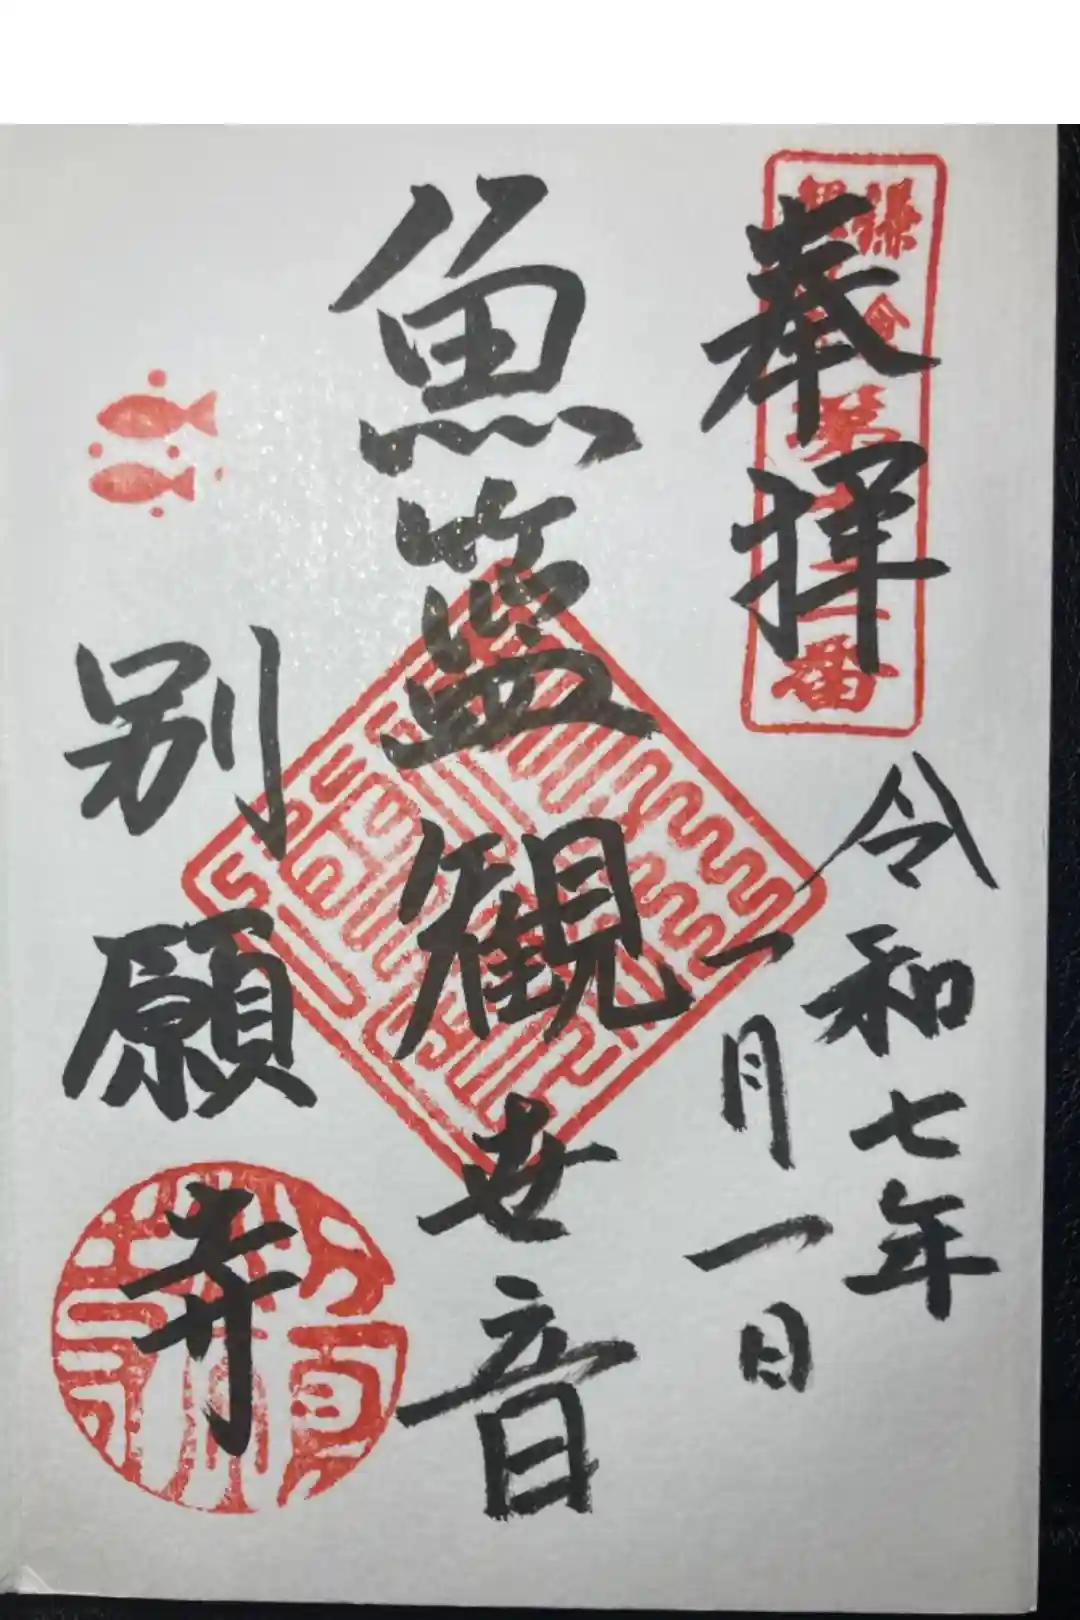 奉拝
令和七年
一月一日
魚籃観世音
別願寺